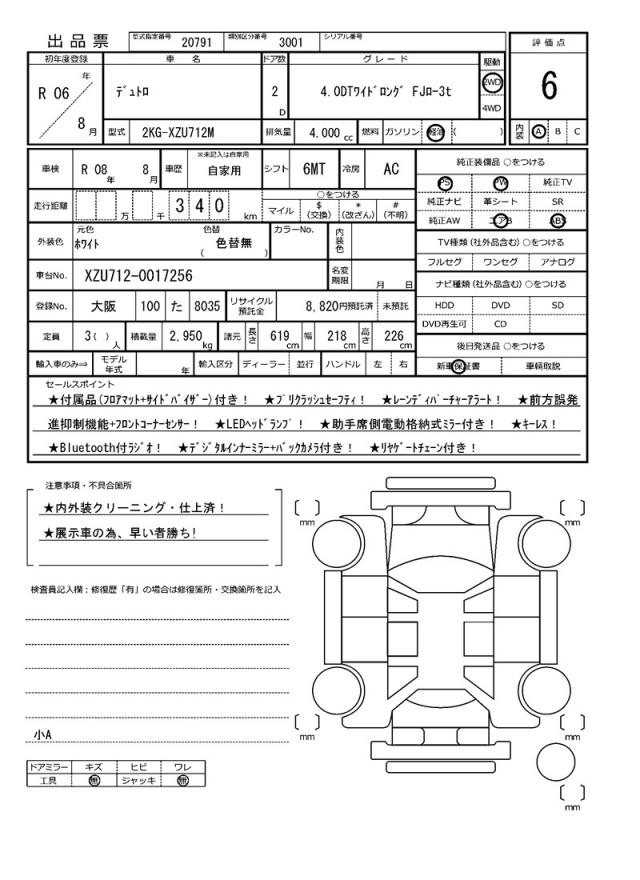 出品票 型式指定番号 20791 類別区分番号 3001 シリアル番号
評価点
6
内装 A B C
初年度登録 車名 ドア数 グレード 駆動
R 06 年 8 月 デュトロ 2 D 4.0DTワイドロング FJロー3t 2WD 4WD
型式 2KG-XZU712M 排気量 4,000 cc 燃料 ガソリン 軽油 ( )
車検 R 08 年 8 月 車歴 ※未記入は自家用 自家用 シフト 6MT 冷房 AC
走行距離 万 千 3 4 0 km ○をつける
マイル $(交換) *(改ざん) #(不明)
外装色 元色 ホワイト 色替 ( 色替無 ) カラーNo. 内装色
車台No. XZU712-0017256 名変期限 月 日
登録No. 大阪 100 た 8035 リサイクル預託金 8,820円預託済 未預託
定員 3( ) 人 積載量 2,950 kg 諸元 長さ 619 cm 幅 218 cm 高さ 226 cm
輸入車のみ⇒ モデル年式 年 輸入区分 ディーラー 並行 ハンドル 左 右
純正装備品 ○をつける
PS PW 純正TV
純正ナビ 革シート SR
純正AW エアB ABS
TV種類(社外品含む)○をつける
フルセグ ワンセグ アナログ
ナビ種類(社外品含む)○をつける
HDD DVD SD
DVD再生可 CD
後日発送品 ○をつける
新車保証書 車輌取説
セールスポイント
★付属品(フロアマット+サイドバイザー)付き! ★プリクラッシュセーフティ! ★レーンディパーチャーアラート! ★前方誤発
進抑制機能+フロントコーナーセンサー! ★LEDヘッドランプ! ★助手席側電動格納式ミラー付き! ★キーレス!
★Bluetooth付ラジオ! ★デジタルインナーミラー+バックカメラ付き! ★リヤゲートチェーン付き!
注意事項・不具合箇所
★内外装クリーニング・仕上済!
★展示車の為、早い者勝ち!
検査員記入欄:修復歴「有」の場合は修復箇所・交換箇所を記入
小A
ドアミラー キズ ヒビ ワレ
工具 無 ジャッキ 無
[ ] mm
[ ] mm
[ ] mm
[ ] mm
[ ] mm